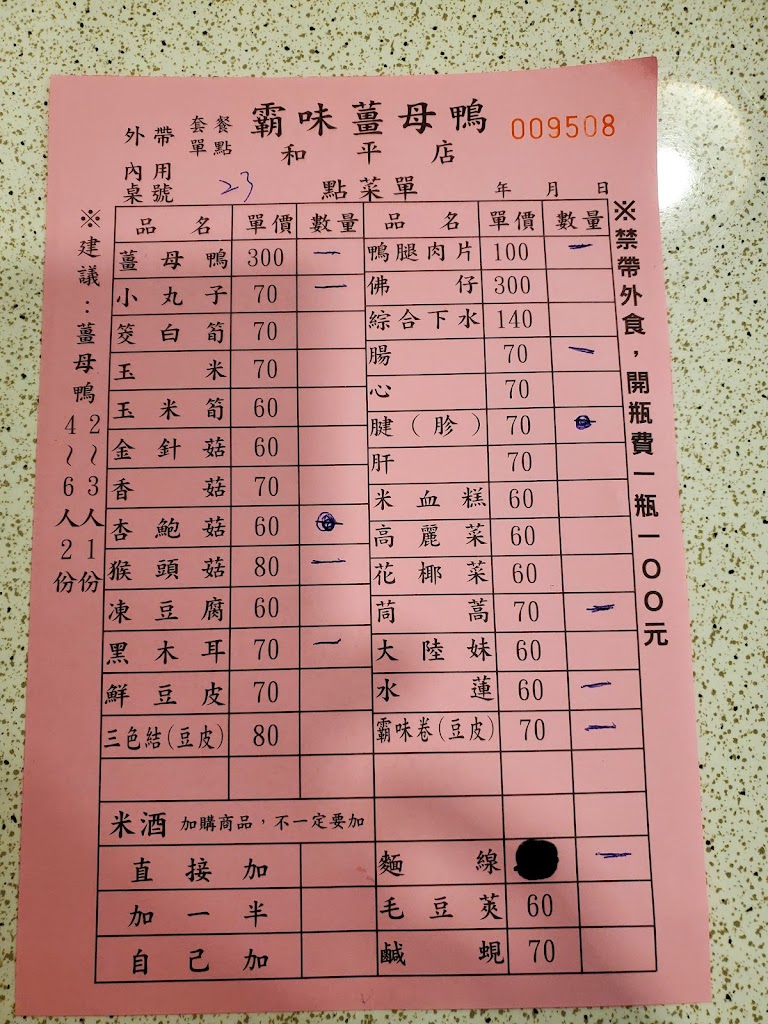 外帶 套餐點單 霸味薑母鴨 009508
和平店
內用桌號 23 點菜單 年 月 日
※建議：薑母鴨 2~3人1份
4~6人2份
※禁帶外食，開瓶費一瓶一００元
品名 單價 數量 品名 單價 數量
薑母鴨 300 一 鴨腿肉片 100 一
小丸子 70 一 佛仔 300
筊白筍 70 綜合下水 140
玉米 70 腸 70 一
玉米筍 60 心 70
金針菇 60 腱(胗) 70
香菇 70 肝 70
杏鮑菇 60 米血糕 60
猴頭菇 80 一 高麗菜 60
凍豆腐 60 花椰菜 60
黑木耳 70 一 茼蒿 70 一
鮮豆皮 70 大陸妹 60
三色結(豆皮) 80 水蓮 60 一
霸味卷(豆皮) 70 一
米酒 加購商品，不一定要加
直接加 麵線 一
加一半 毛豆莢 60
自己加 鹹蜆 70